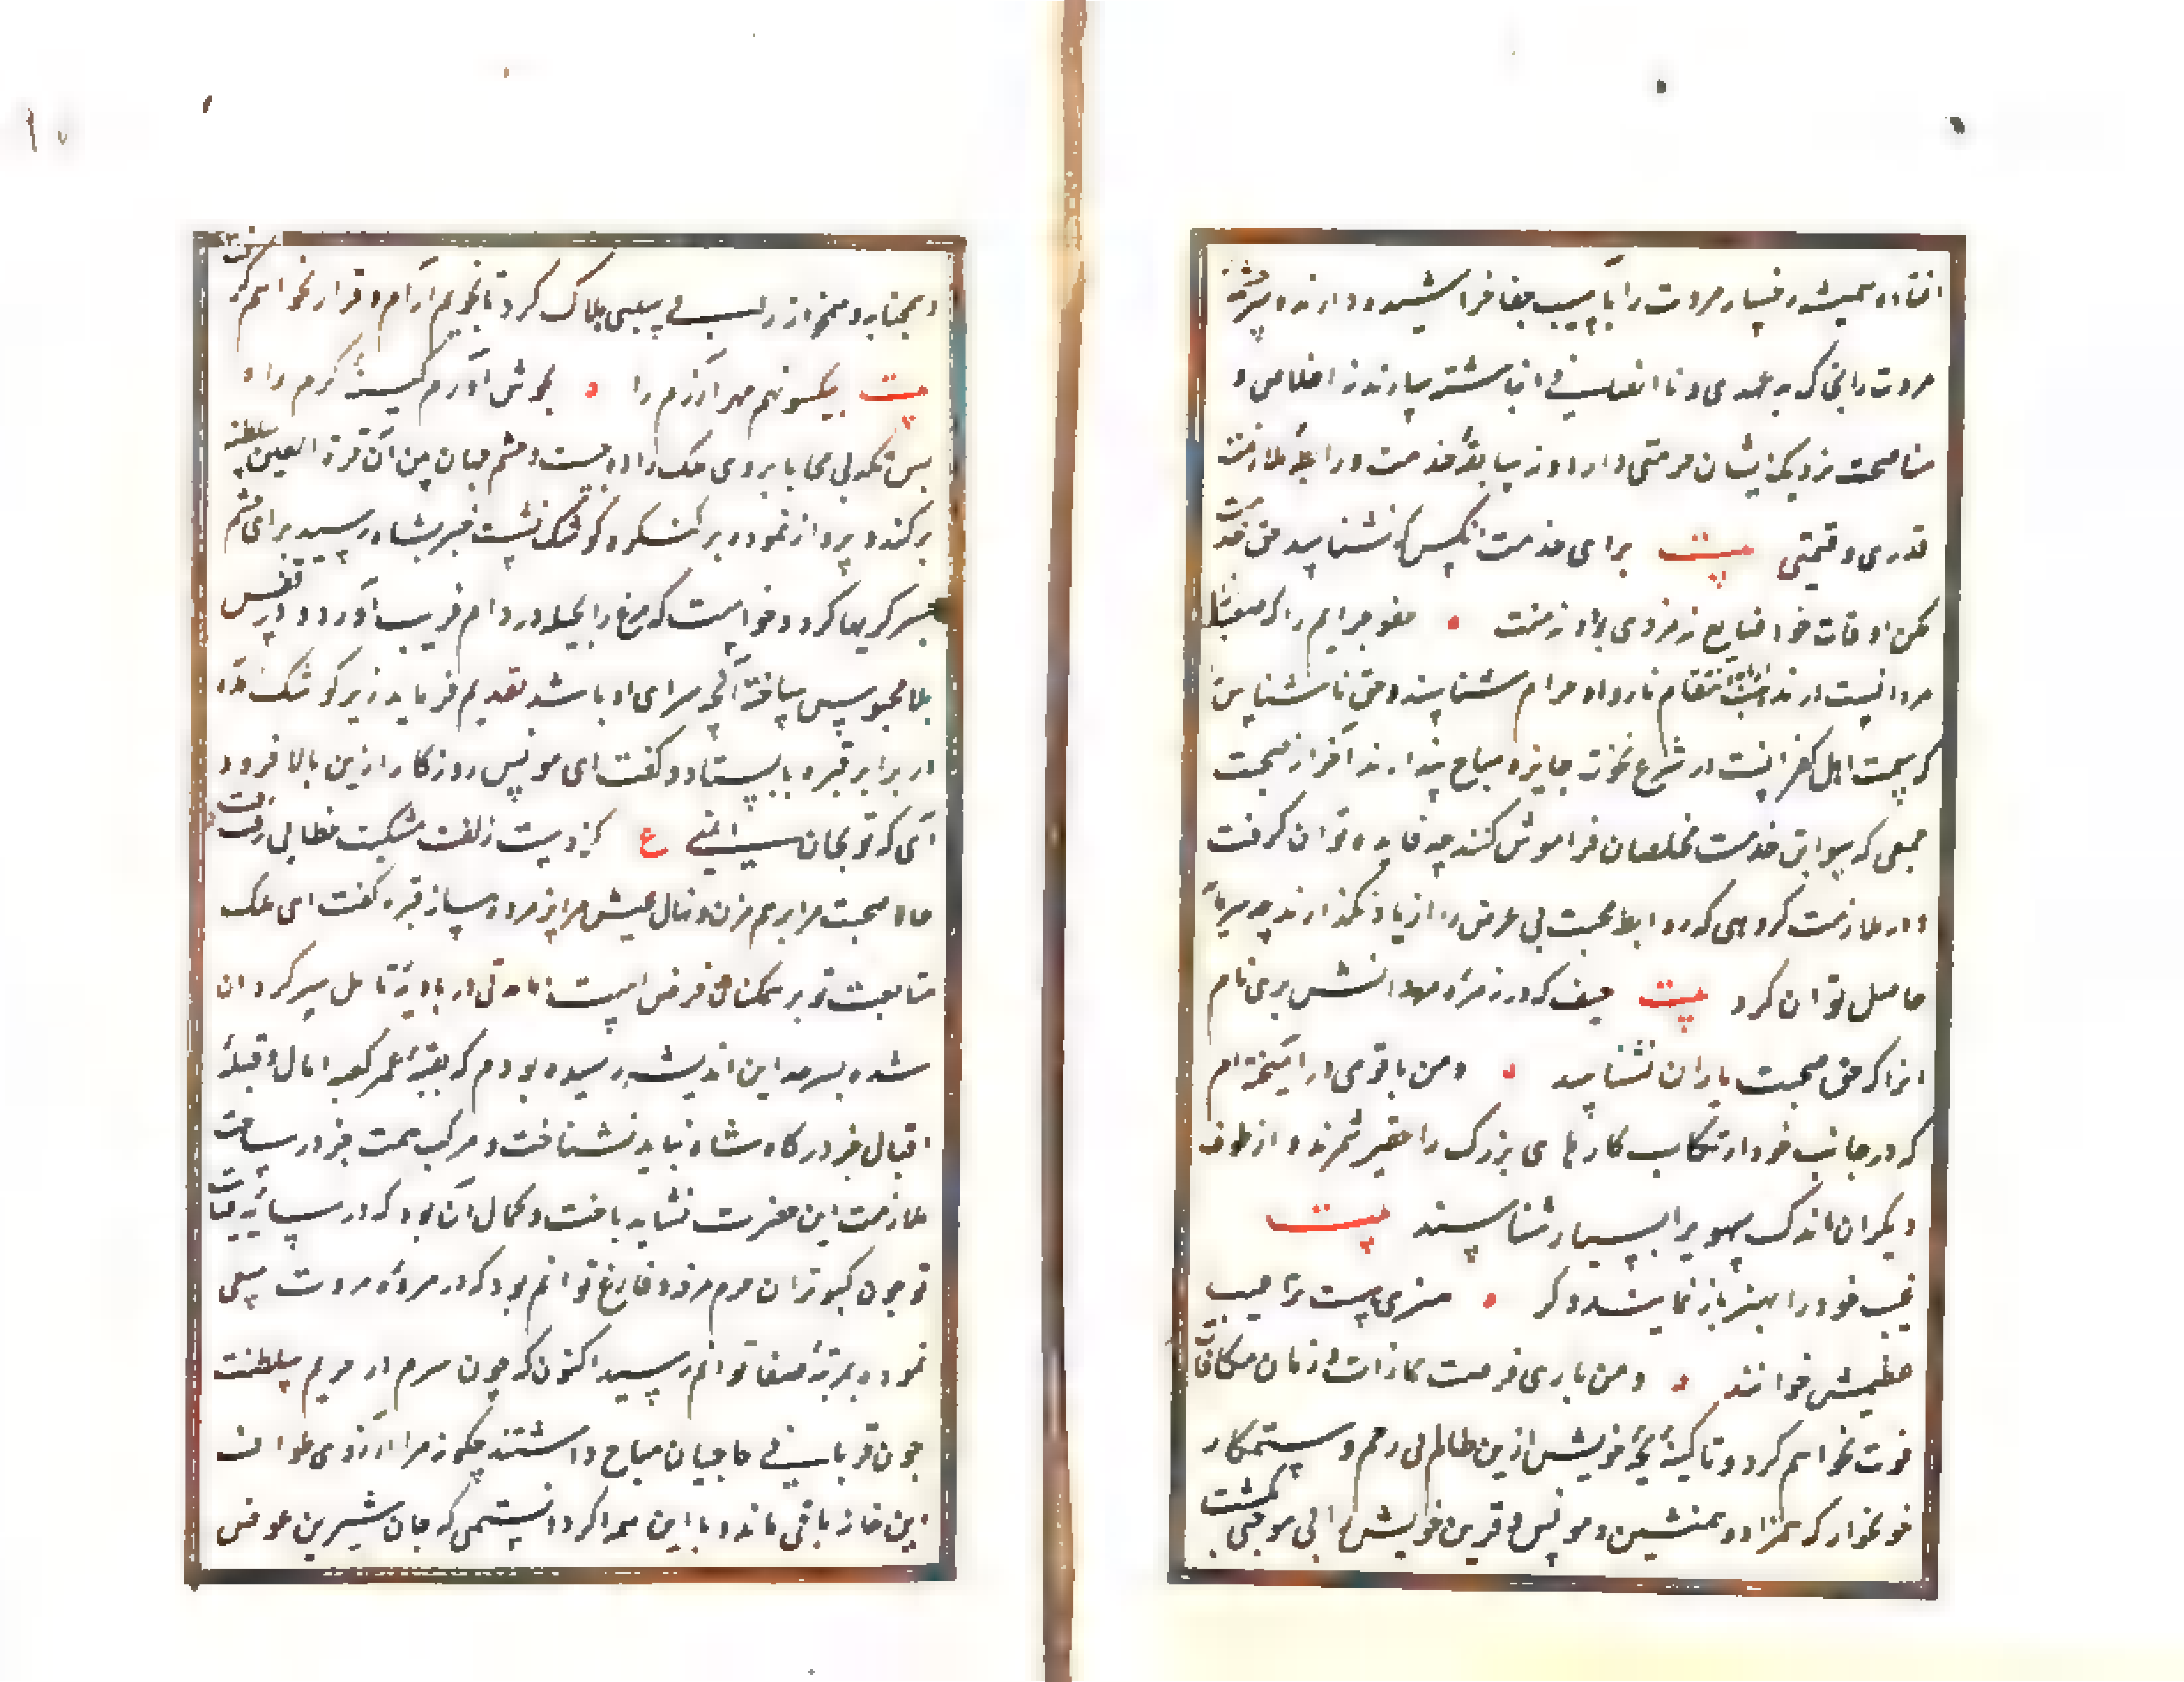 افتاده همیشه رخسار مروت را بآسیب جفا خراشیده دارند و سرچشمه
مروت را بخاک بدعهدی و ناانصافی انباشته سازند نه اخلاص و
مناصحت نزدیک ایشان حرمتی دارد و نه سابقهٔ خدمت و رابطهٔ ملازمت
قدری و قیمتی بیت برای خدمت آنکس که نشناسد حق خدمت
مکن اوقات خود ضایع نه مزدی باد نه منت عفو جرایم را که صفت
مردانست در انتقام ناروا و حرام شناسند و حق ناشناسی
که سمت اهل کفرانست در شرع نخوت جایز و مباح پندارند آخر از صحبت
جمعی که سوابق خدمت مخلصان فراموش کنند چه فایده توان گرفت
و در ملازمت گروهی که روابط محبت بی غرض را از یاد بگذارند چه سرمایه
حاصل توان کرد بیت حیف که در زمرهٔ مردانش بری نام
انرا که حق صحبت یاران نشناسد ومن با قومی درآمیخته ام
که در جانب خود ارتکاب کارهای بزرگ را حقیر شمرند و از طرف
دیگران اندک سهویرا بسیار شناسند بیت
عیب خود را هنر باز نمایند وگر هنری هست ترا عیب
عظیمش خوانند ومن باری فرصت مجازات و زمان مکافات
فوت نخواهم کرد و تا کینهٔ بچهٔ خویش ازین ظالم بی رحم و ستمکار
خونخوار که همزاد و همنشین و مونس و قرین خویش را بی موجبی بکشت
و همخانه و همخواز را بی سببی هلاک کرد نخواهم آرام و قرار نخواهم گرفت
بیت بیکسو نهم مهر آزرم را بجوش آورم کینهٔ گرم را
پس آنگه بی محابا بروی ملک زاده جست و چشم جهان بین آن قرة العین سلطنت
برکند و پرواز نموده بر کنگرهٔ کوشک نشست خبر بشاه رسید برای چشم
پسر گریها کرد و خواست که مرغ را بحیله در دام فریب آورد و در قفس
بلا محبوس ساخته آنچه سزای او باشد تقدیم فرماید زیر کوشک آمد
در برابر قبره بایستاد و گفت ای مونس روزگار ازین بالا فرود
آی که تو بجان ایمنی ع گر ز دست زلفت مشکینت خطایی رفت رفت
حالا صحبت مرا برهم مزن و نهال عیش مرا پژمرده مساز قبره گفت ای ملک
متابعت تو بر همگنان فرض است اما مدتی در بادیهٔ تامل سرگردان
شده بسرحد این اندیشه رسیده بودم که بقیهٔ عمر کعبهٔ امال و قبلهٔ
اقبال جز درگاه شاه نباید شناخت و مرکب همت جز در ساحت
ملازمت این حضرت نشاید باخت و گمان آن بود که در سایهٔ عنایت
تو چون کبوتران حرم مرفه و فارغ توانم بود که در مروهٔ مروت سعی
نموده بمرتبهٔ صفا توانم رسید اکنون که خون پسرم در حریم سلطنت
چون قربانی حاجیان مباح داشتند چگونه مرا آرزوی طواف
این خانه باقی ماند و با این همه اگر دانستمی که جان شیرین عوض